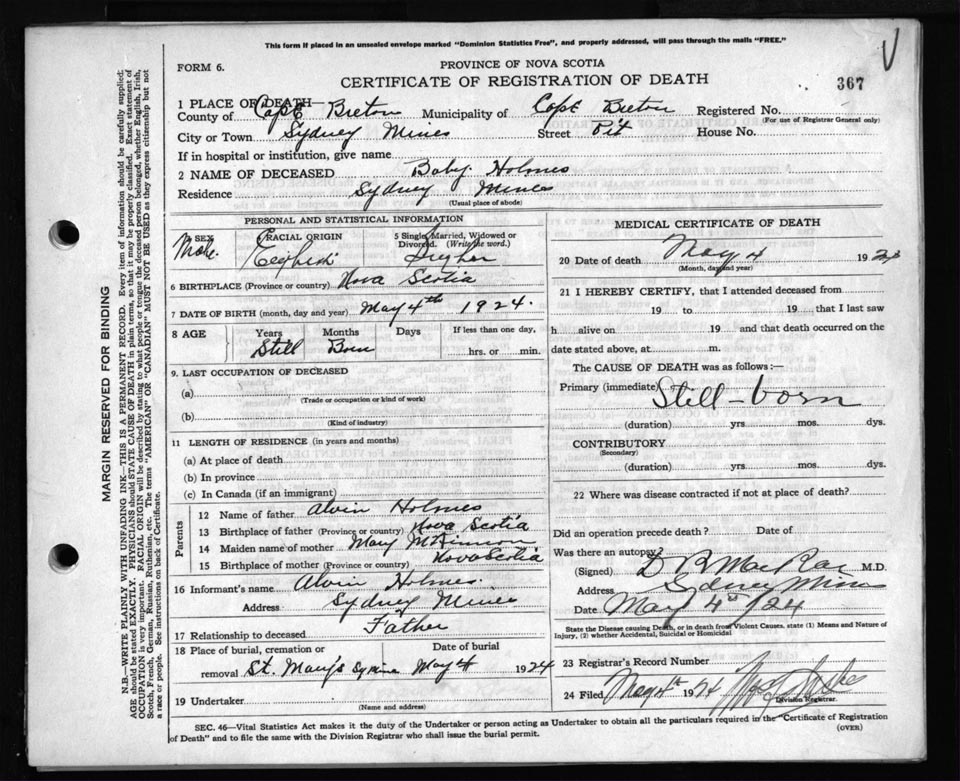 This form if placed in an unsealed envelope marked "Dominion Statistics Free", and properly addressed, will pass through the mails "FREE."
FORM 6.
PROVINCE OF NOVA SCOTIA
CERTIFICATE OF REGISTRATION OF DEATH
367
1 PLACE OF DEATH—
County of Cape Breton Municipality of Cape Breton Registered No.
(For use of Registrar General only)
City or Town Sydney Mines Street Pit House No.
If in hospital or institution, give name
2 NAME OF DECEASED Baby Holmes
Residence Sydney Mines
(Usual place of abode)
PERSONAL AND STATISTICAL INFORMATION
3 SEX Male
4 RACIAL ORIGIN English
5 Single, Married, Widowed or Divorced. (Write the word.) Single
6 BIRTHPLACE (Province or country) Nova Scotia
7 DATE OF BIRTH (month, day and year) May 4th 1924.
8 AGE Years Months Days If less than one day,
Still Born hrs. or min.
9. LAST OCCUPATION OF DECEASED
(a)
(Trade or occupation or kind of work)
(b)
(Kind of industry)
11 LENGTH OF RESIDENCE (in years and months)
(a) At place of death
(b) In province
(c) In Canada (if an immigrant)
Parents
12 Name of father Alvin Holmes
13 Birthplace of father (Province or country) Nova Scotia
14 Maiden name of mother Mary McKinnon
15 Birthplace of mother (Province or country) Nova Scotia
16 Informant's name Alvin Holmes.
Address Sydney Mines
17 Relationship to deceased Father
18 Place of burial, cremation or removal Date of burial
St. Mary's May 4 1924
19 Undertaker
(Name and address)
MEDICAL CERTIFICATE OF DEATH
20 Date of death May 4 1924
(Month, day and year)
21 I HEREBY CERTIFY, that I attended deceased from
19 to 19 that I last saw
h alive on 19 and that death occurred on the
date stated above, at m.
The CAUSE OF DEATH was as follows:—
Primary (immediate) Still-born
(duration) yrs. mos. dys.
CONTRIBUTORY
(Secondary)
(duration) yrs. mos. dys.
22 Where was disease contracted if not at place of death?
Did an operation precede death? Date of
Was there an autopsy?
(Signed) MacRae M.D.
Address Sydney Mines
Date May 4th/24
State the Disease causing Death, or in death from Violent Causes, state (1) Means and Nature of
Injury, (2) whether Accidental, Suicidal or Homicidal
23 Registrar's Record Number
24 Filed May 4th 1924
Division Registrar.
SEC. 46—Vital Statistics Act makes it the duty of the Undertaker or person acting as Undertaker to obtain all the particulars required in the "Certificate of Registration
of Death" and to file the same with the Division Registrar who shall issue the burial permit.
(OVER)
MARGIN RESERVED FOR BINDING
N.B.—WRITE PLAINLY WITH UNFADING INK—THIS IS A PERMANENT RECORD. Every item of information should be carefully supplied;
AGE should be stated EXACTLY. PHYSICIANS should STATE CAUSE OF DEATH in plain terms, so that it may be properly classified. Exact statement of
OCCUPATION is very important. RACIAL ORIGIN will be described by stating to what people or tongue the deceased person belonged, whether English, Irish,
Scotch, French, German, Russian, Ruthenian, etc. The terms "AMERICAN" OR "CANADIAN" MUST NOT BE USED as they express citizenship but not
a race or people. See instructions on back of Certificate.